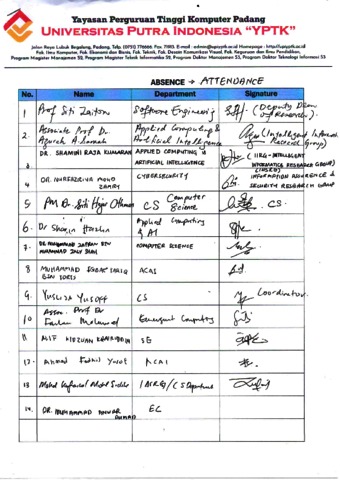 Yayasan Perguruan Tinggi Komputer Padang
UNIVERSITAS PUTRA INDONESIA "YPTK"
Jalan Raya Lubuk Begalung, Padang, Telp. (0751) 776666 Fax. 71913.
Fak. Ilmu Komputer, Fak. Ekonomi dan Bisnis, Fak. Teknik, Fak. Desain Komunikasi Visual, Fak. Keguruan dan Ilmu Pendidikan,
Program Magister Manajemen S2, Program Magister Teknik Informatika S2, Program Doktor Manajemen S3, Program Doktor Teknologi Informasi S3
ABSENCE - ATTENDANCE
No. Name Department Signature
1 Prof Siti Zaiton Software Engineering (Deputy Dean of Research)
2. Associate Prof Dr. Applied Computing & Artificial Intelligence (Intelligent Research Group)
3 DR. SHAMINI RAJA KUMARAN APPLIED COMPUTING & ARTIFICIAL INTELLIGENCE (IIRG-INTELLIGENT INFORMATICS RESEARCH GROUP)
4 DR. NURAZRIVA MOHD ZAMRY CYBERSECURITY INFORMATION ASSURANCE & SECURITY RESEARCH GROUP
5. Dr. Siti Hajar Othman CS Computer Science CS.
6. Dr Sharin Hazlin Applied Computing & AI
7. COMPUTER SCIENCE
8 MUHAMMAD BIN IDRIS ACAI
9. Yusliza Yusoff CS Coordinator
10 Assoc. Prof Dr Farhan Mohamed Emergent Computing
11 SE
12. Ahmad Fadhil Yusof ACAI
13 Mohd
14. DR. MUHAMMAD ANWAR AHMAD EC